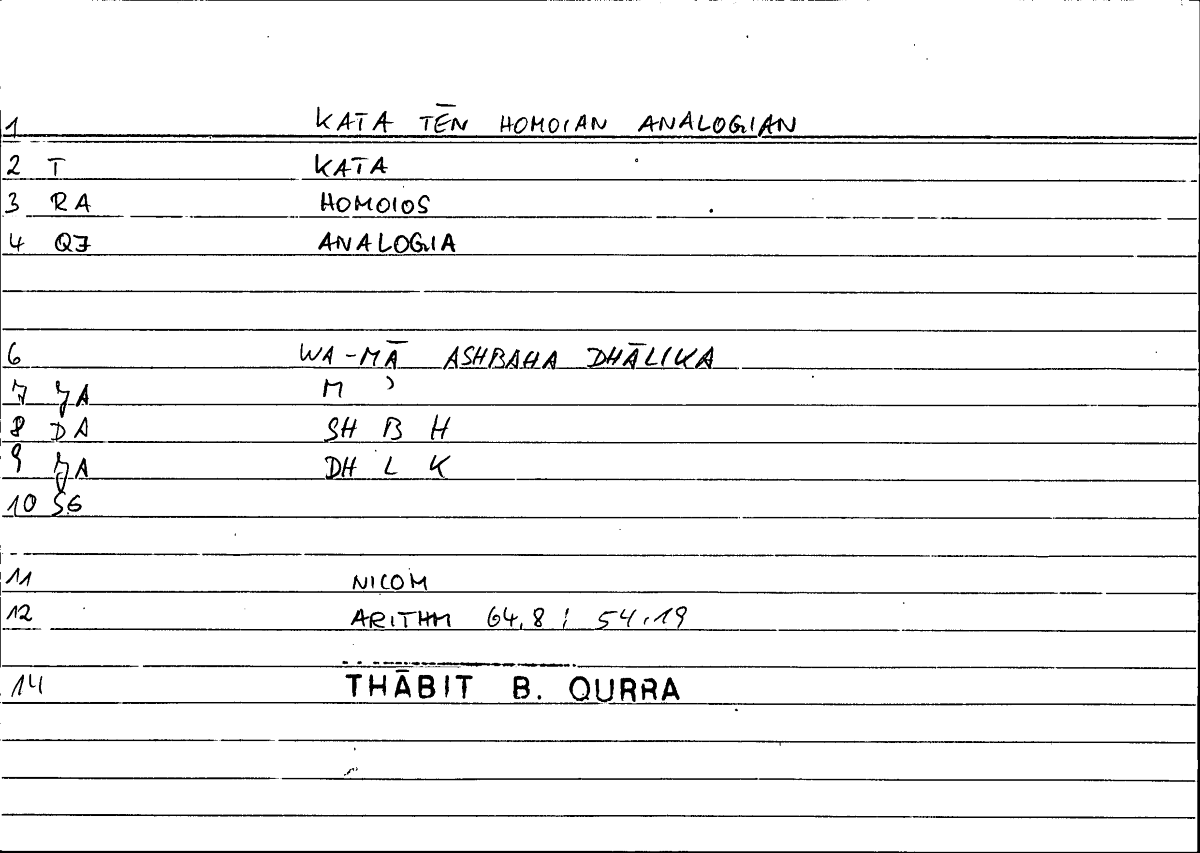 1 KATA TĒN HOMOIAN ANALOGIAN
2 T KATA
3 RA HOMOIOS
4 QJ ANALOGIA
6 WA-MĀ ASHBAHA DHĀLIKA
7 JA M ʾ
8 DA SH B H
9 JA DH L K
10 SG
11 NICOM
12 ARITHM 64,8 ; 54,19
14 THĀBIT B. QURRA